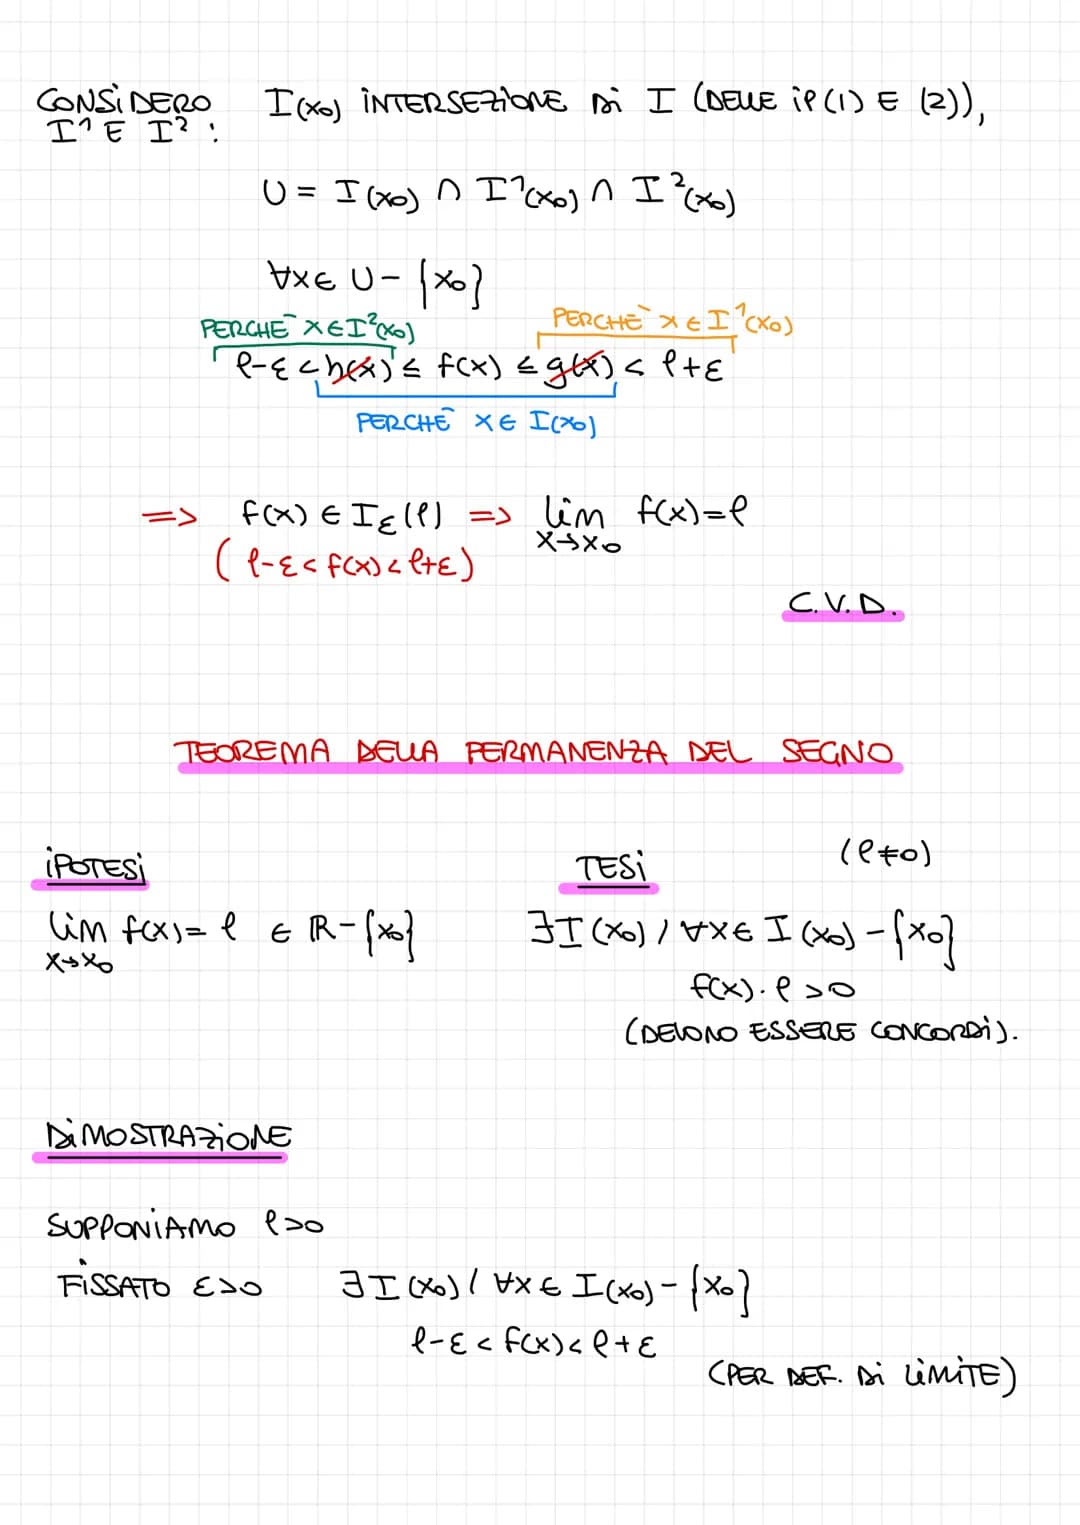 CONSIDERO I(x₀) INTERSEZIONE DI I (DELLE IP (1) E (2)),
I¹ E I² :
U = I(x₀) ∩ I¹(x₀) ∩ I²(x₀)
∀x∈ U - {x₀}
PERCHÈ x∈I²(x₀) PERCHÈ x∈I¹(x₀)
ℓ-ε < h(x) ≤ f(x) ≤ g(x) < ℓ+ε
PERCHÈ x∈ I(x₀)
=> f(x) ∈ Iε(ℓ) => lim f(x)=ℓ
x→x₀
(ℓ-ε < f(x) < ℓ+ε)
C.V.D.
TEOREMA DELLA PERMANENZA DEL SEGNO
IPOTESI TESI (ℓ≠0)
lim f(x)= ℓ ∈ ℝ-{x₀} ∃I(x₀) / ∀x∈ I(x₀) - {x₀}
x→x₀
f(x)·ℓ >0
(DEVONO ESSERE CONCORDI).
DIMOSTRAZIONE
SUPPONIAMO ℓ>0
FISSATO ε>0 ∃I(x₀) / ∀x∈ I(x₀) - {x₀}
ℓ-ε < f(x) < ℓ+ε
(PER DEF. DI LIMITE)